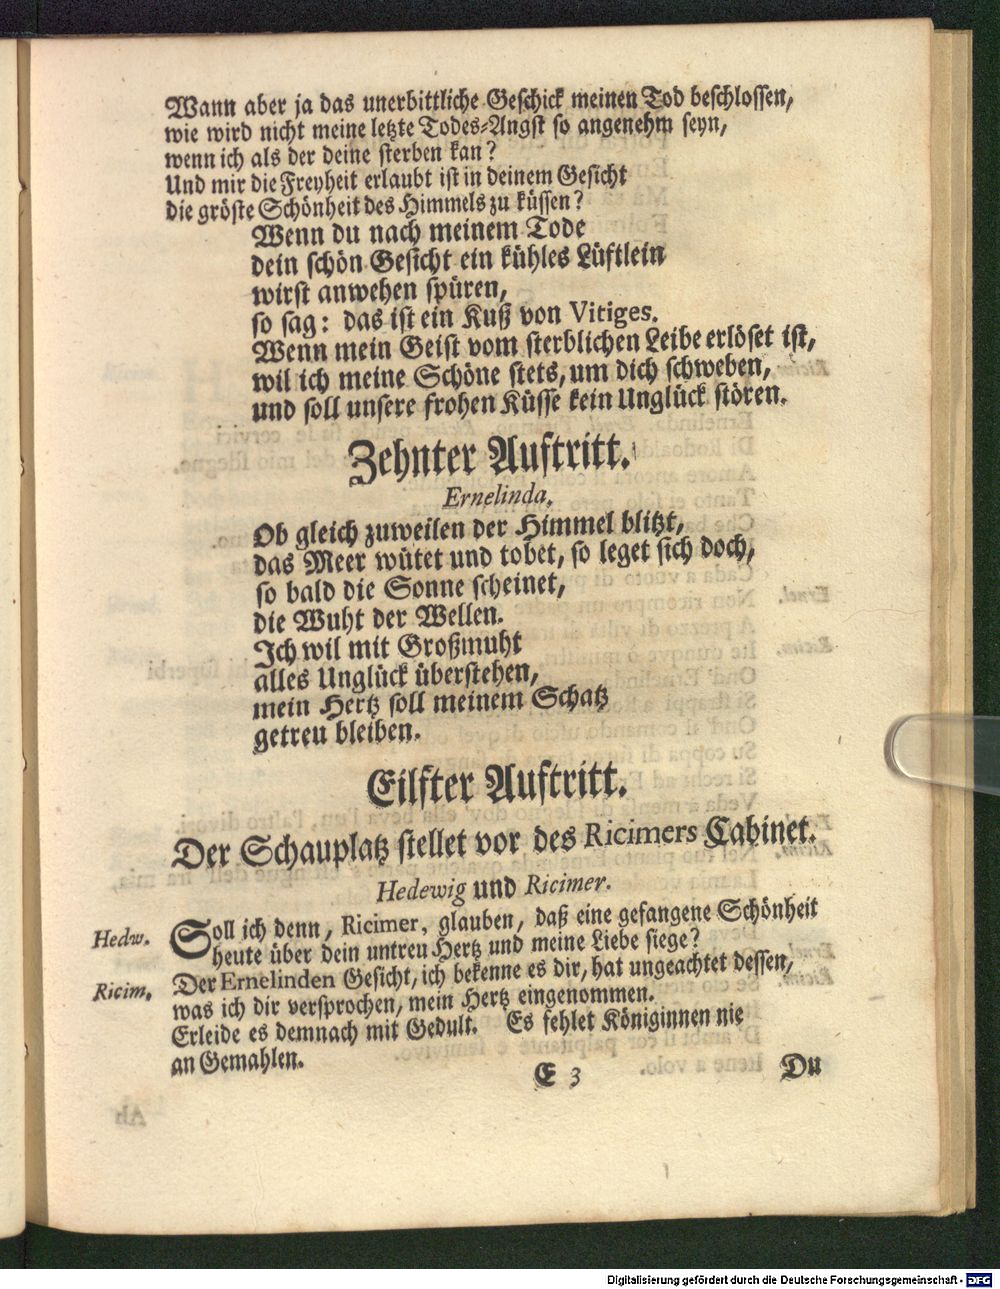 Wann aber ja das unerbittliche Geschick meinen Tod beschlossen,
wie wird nicht meine letzte Todes-Angst so angenehm seyn,
wenn ich als der deine sterben kan?
Und mir die Freyheit erlaubt ist in deinem Gesicht
die gröste Schönheit des Himmels zu küssen?
Wenn du nach meinem Tode
dein schön Gesicht ein kühles Lüftlein
wirst anwehen spüren,
so sag: das ist ein Kuß von Vitiges.
Wenn mein Geist vom sterblichen Leibe erlöset ist,
wil ich meine Schöne stets, um dich schweben,
und soll unsere frohen Küsse kein Unglück stören.
Zehnter Auftritt.
Ernelinda.
Ob gleich zuweilen der Himmel blitzt,
das Meer wütet und tobet, so leget sich doch,
so bald die Sonne scheinet,
die Wuht der Wellen.
Ich wil mit Großmuht
alles Unglück überstehen,
mein Hertz soll meinem Schatz
getreu bleiben.
Eilfter Auftritt.
Der Schauplatz stellet vor des Ricimers Cabinet.
Hedewig und Ricimer.
Hedw. Soll ich denn, Ricimer, glauben, daß eine gefangene Schönheit
heute über dein untreu Hertz und meine Liebe siege?
Ricim. Der Ernelinden Gesicht, ich bekenne es dir, hat ungeachtet dessen,
was ich dir versprochen, mein Hertz eingenommen.
Erleide es demnach mit Gedult. Es fehlet Königinnen nie
an Gemahlen.
E 3 Du
Digitalisierung gefördert durch die Deutsche Forschungsgemeinschaft - DFG